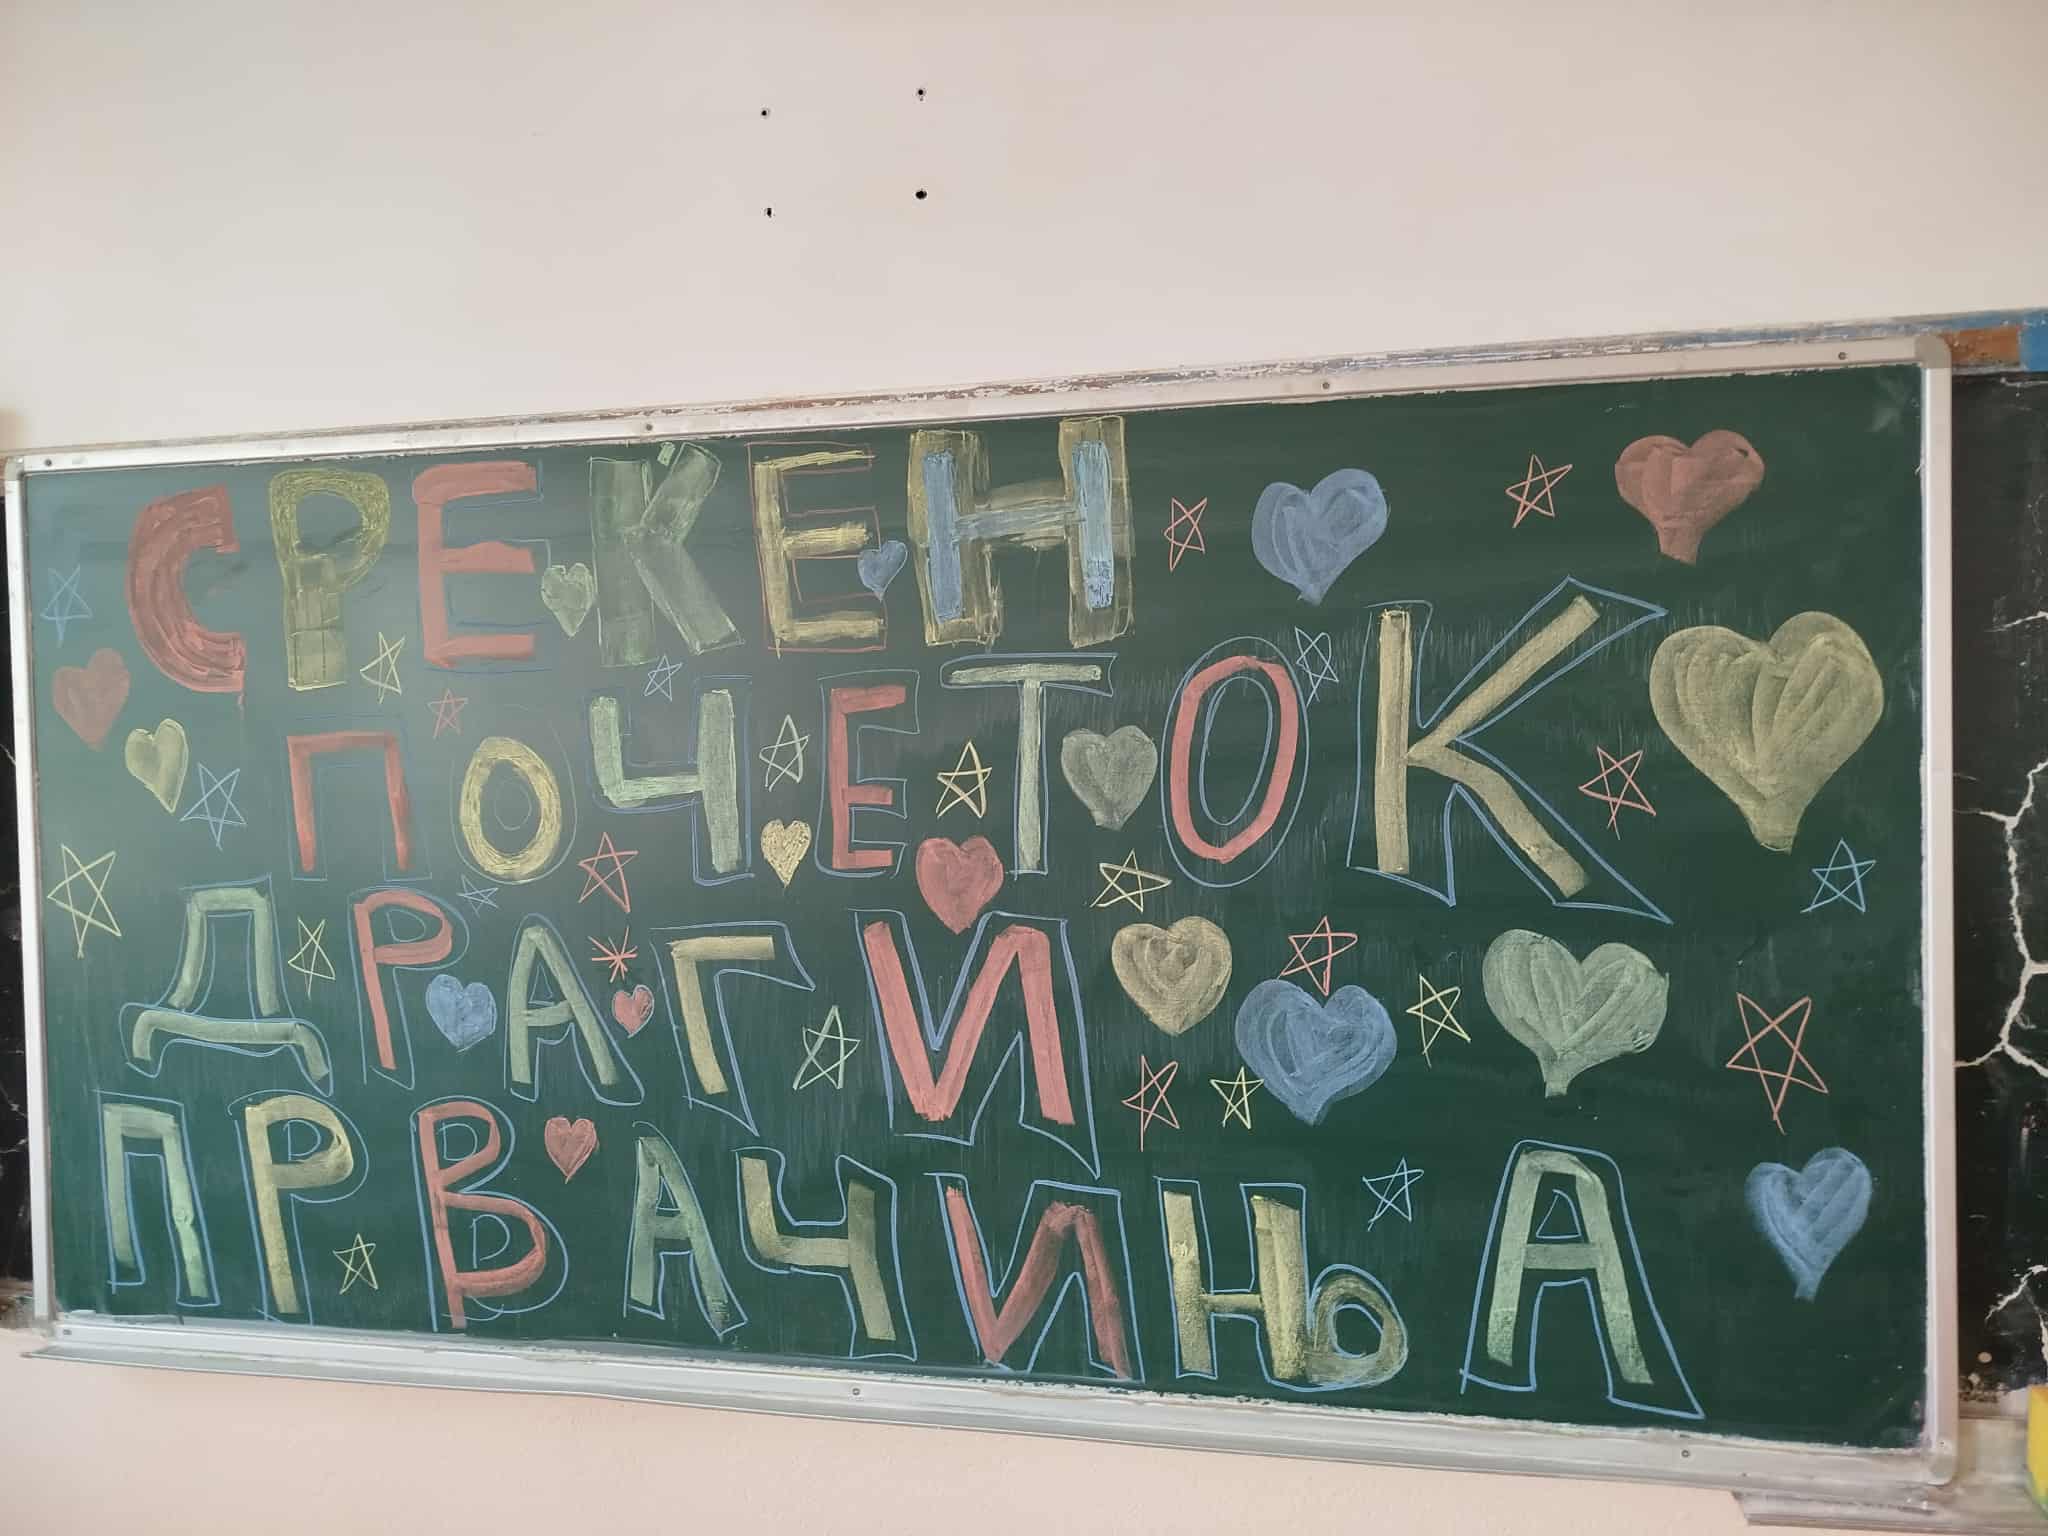 СРЕКЕН
ПОЧЕТОК
ДРАГИ
ПРВАЧИЊА